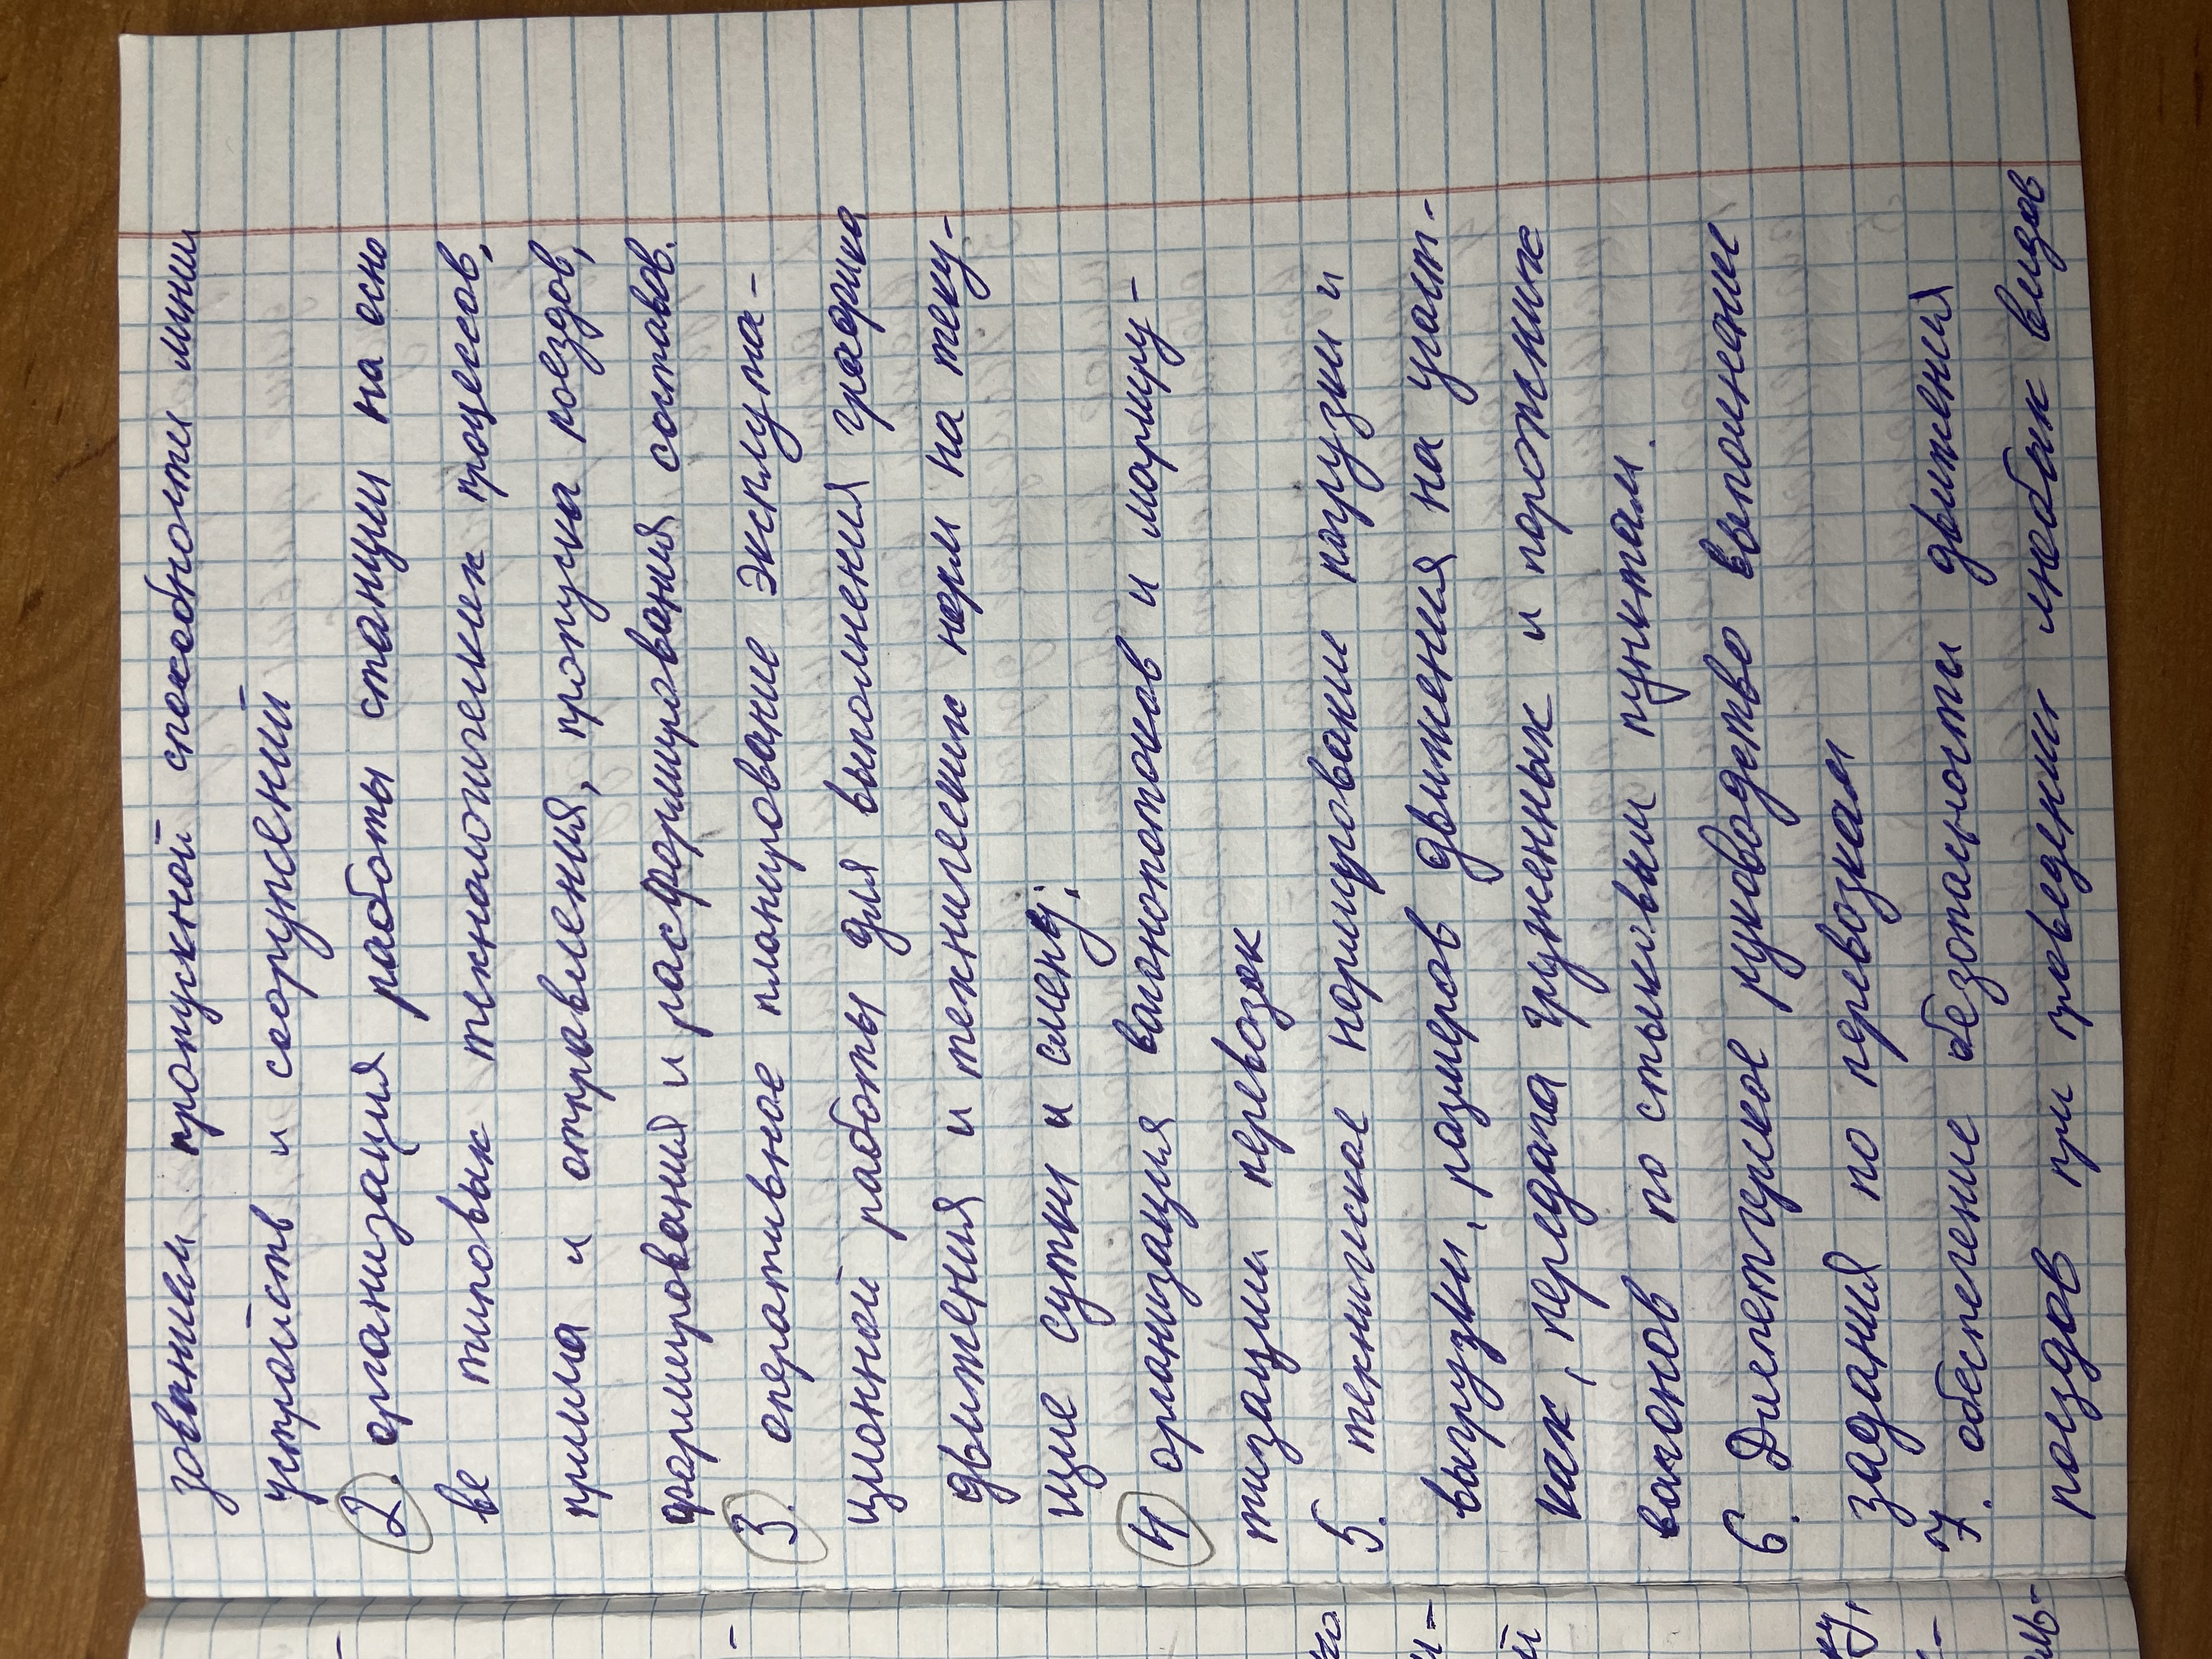 зованием пропускной способности линии
устройств и сооружений
2. организация работы станции на осно
ве типовых технологических процессов,
приема и отправления, пропуска поездов,
формирования и расформирования составов.
3. оперативное планирование эксплуата-
ционной работы для выполнения графика
движения и технических норм на теку-
щие сутки и смену;
4 организация вагонопотоков и маршру-
тизации перевозок
5. техническое нормировании погрузки и
выгрузки, размеров движения на участ-
ках, передача груженных и порожних
вагонов по стыковым пунктам.
6. Диспетчерское руководство выполнение
задания по перевозкам
7. обеспечение безопасности движения
поездов при проведении любых видов